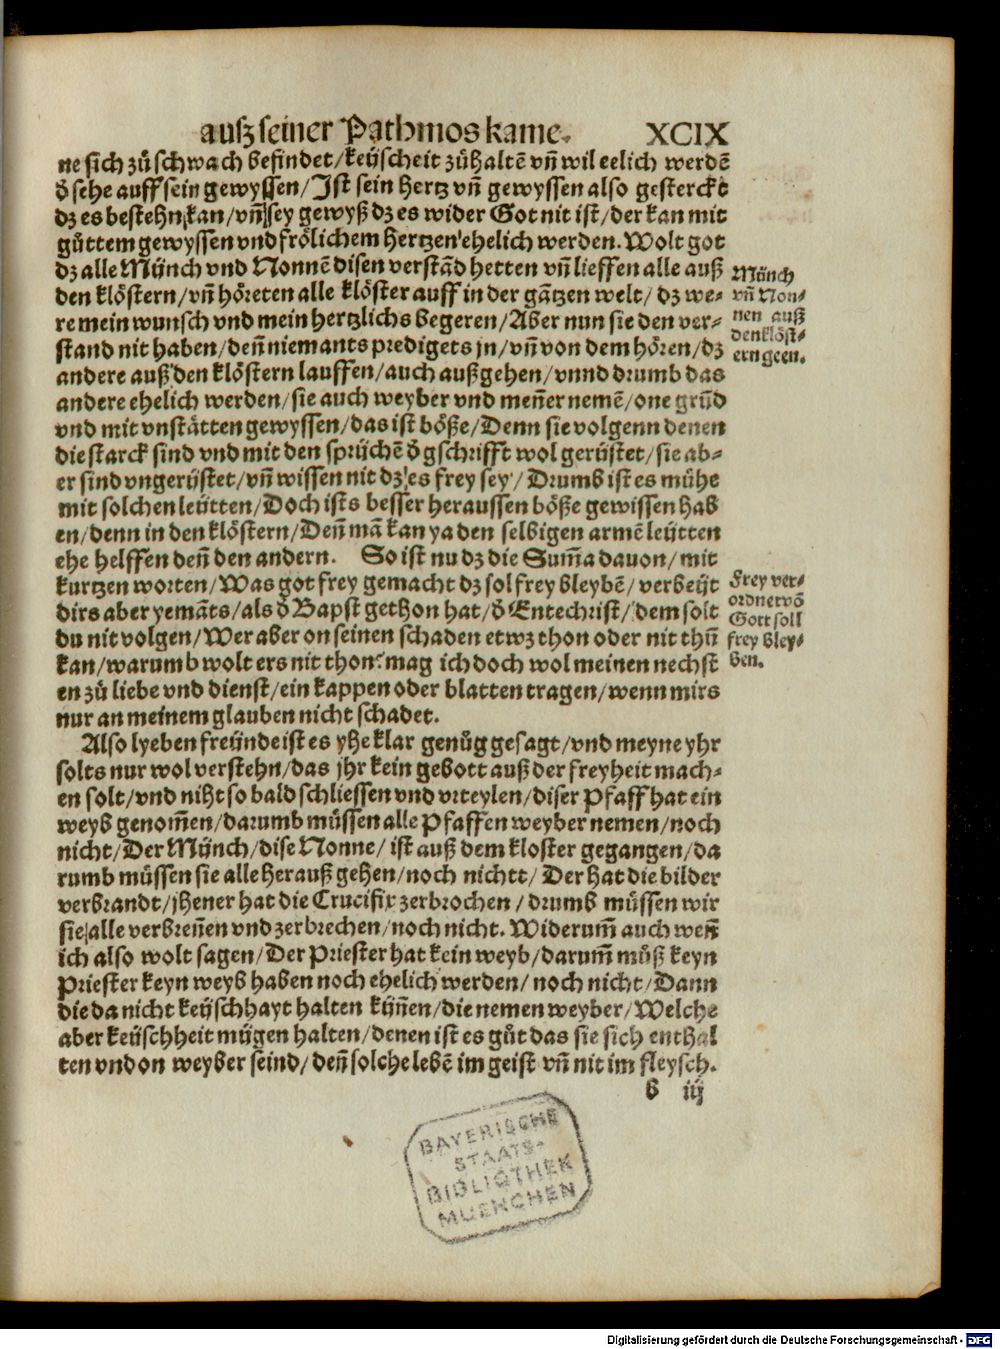 auß seiner Pathmos kame. XCIX
ne sich zů schwach befindet/keüscheit zůhaltē vñ wil eelich werdē
ð sehe auff sein gewyssen/Ist sein hertz vñ gewyssen also gesterckt
dz es bestehn kan/vñ sey gewyß dz es wider Got nit ist/der kan mit
gůttem gewyssen vnd frölichem hertzen ehelich werden. Wolt got
dz alle Münch vnd Nonnē disen verstād hetten vñ lieffen alle auß
den klöstern/vñ höreten alle klöster auff in der gātzen welt/ dz we-
re mein wunsch vnd mein hertzlichs begeren/Aber nun sie den ver-
stand nit haben/deñ niemants predigets jn/vñ von dem hören/dz
andere auß den klöstern lauffen/auch außgehen/vnnd drumb das
andere ehelich werden/sie auch weyber vnd meñer nemē/one grūd
vnd mit vnstätten gewyssen/das ist böße/Denn sie volgenn denen
die starck sind vnd mit den sprüchē ð gschrifft wol gerüstet/sie ab-
er sind vngerüstet/vñ wissen nit dz es frey sey/ Drumb ist es mühe
mit solchen leütten/Doch ists besser heraussen böße gewissen hab
en/denn in den klöstern/Deñ mā kan ya den selbigen armē leütten
ehe helffen deñ den andern. So ist nu dz die Sum̄a dauon/ mit
kurtzen worten/Was got frey gemacht dz sol frey bleybē/ verbeüt
dirs aber yemāts/als ð Bapst gethon hat/ð Entechrist/ dem solt
du nit volgen/Wer aber on seinen schaden etwz thon oder nit thūn
kan/warumb wolt ers nit thon? mag ich doch wol meinen nechst
en zů liebe vnd dienst/ein kappen oder blatten tragen/wenn mirs
nur an meinem glauben nicht schadet.
Also lyeben freünde ist es yhe klar genůg gesagt/vnd meyne yhr
solts nur wol verstehn/das jhr kein gebott auß der freyheit mach-
en solt/vnd niht so bald schliessen vnd vrteylen/diser Pfaff hat ein
weyb genom̄en/darumb müssen alle Pfaffen weyber nemen/noch
nicht/Der Münch/dise Nonne/ ist auß dem kloster gegangen/da
rumb müssen sie alle herauß gehen/noch nichtt/ Der hat die bilder
verbrandt/jhener hat die Crucifix zerbrochen/ drumb müssen wir
sie alle verbreñen vnd zerbrechen/noch nicht. Widerum̄ auch weñ
ich also wolt sagen/Der Priester hat kein weyb/darum̄ můß keyn
Priester keyn weyb haben noch ehelich werden/ noch nicht/ Dann
die da nicht keüschhayt halten küñen/die nemen weyber/Welche
aber keüschheit mügen halten/denen ist es gůt das sie sich enthal
ten vnd on weyber seind/deñ solche lebē im geist vñ nit im fleysch.
b iij
Münch
vñ Non-
nen auß
den klöst-
ern geen.
Frey ver-
ordnet vō
Gott soll
frey bley-
ben.
BAYERISCHE
STAATS-
BIBLIOTHEK
MUENCHEN
Digitalisierung gefördert durch die Deutsche Forschungsgemeinschaft - DFG